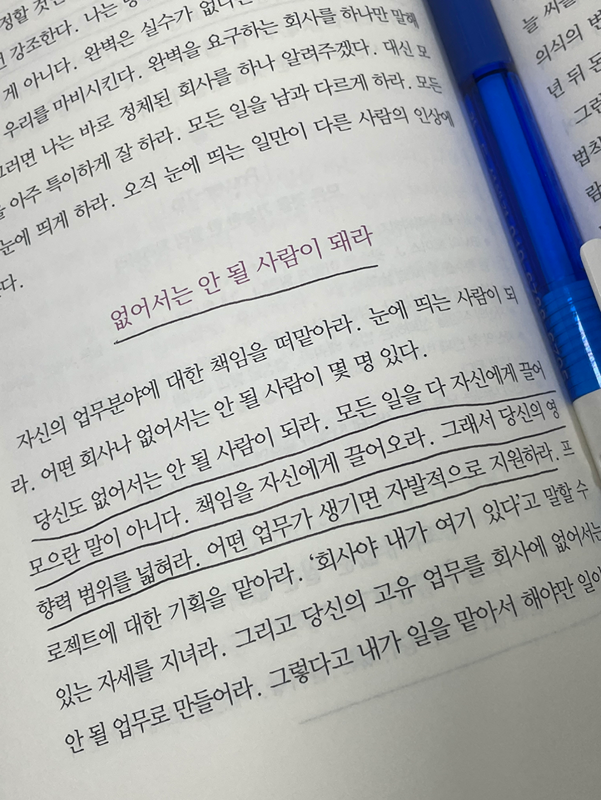 정할 것
강조한다. 나는
게 아니다. 완벽은 실수가 없
우리를 마비시킨다. 완벽을 요구하는 회사를 하나만 말해
그러면 나는 바로 정체된 회사를 하나 알려주겠다. 대신 모
아주 특이하게 잘 하라. 모든 일을 남과 다르게 하라. 모든
눈에 띄게 하라. 오직 눈에 띄는 일만이 다른 사람의 인상에
다.
없어서는 안 될 사람이 돼라
자신의 업무분야에 대한 책임을 떠맡아라. 눈에 띄는 사람이 되
라. 어떤 회사나 없어서는 안 될 사람이 몇 명 있다.
당신도 없어서는 안 될 사람이 되라. 모든 일을 다 자신에게 끌어
모으란 말이 아니다. 책임을 자신에게 끌어오라. 그래서 당신의 영
향력 범위를 넓혀라. 어떤 업무가 생기면 자발적으로 지원하라. 프
로젝트에 대한 기획을 맡아라. ‘회사야 내가 여기 있다’고 말할 수
있는 자세를 지녀라. 그리고 당신의 고유 업무를 회사에 없어서는
안 될 업무로 만들어라. 그렇다고 내가 일을 맡아서 해야만 일이
늘
의식의
년 뒤 돈
그런
법칙
람